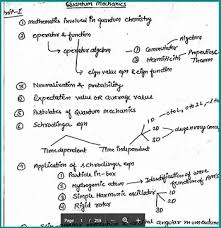 Quantum Mechanics
Unit-I
① Mathematics Involved in quantum chemistry
② operator & function
operator algebra
① Commutator Algebra
② Hermiticity Properties Theorem
eign value eqn & eign function
③ Normalization & probability
④ Expectation value or average value
⑤ Postulates of Quantum Mechanics
⑥ Schrodinger eqn
Time dependent Time independent
1D
2D degeneracy
3D
④ Application of schrodinger eqn
① Particle in-box
② Hydrogenic atom Identification of wave function of AO's
③ Simple Harmonic oscillator 1D
2D
3D
④ Rigid rotor
Page 1 / 258
angular momentum